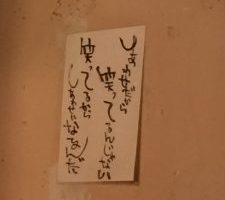 しあわせだから
笑ってるんじゃない
笑ってるから
しあわせになるんだ